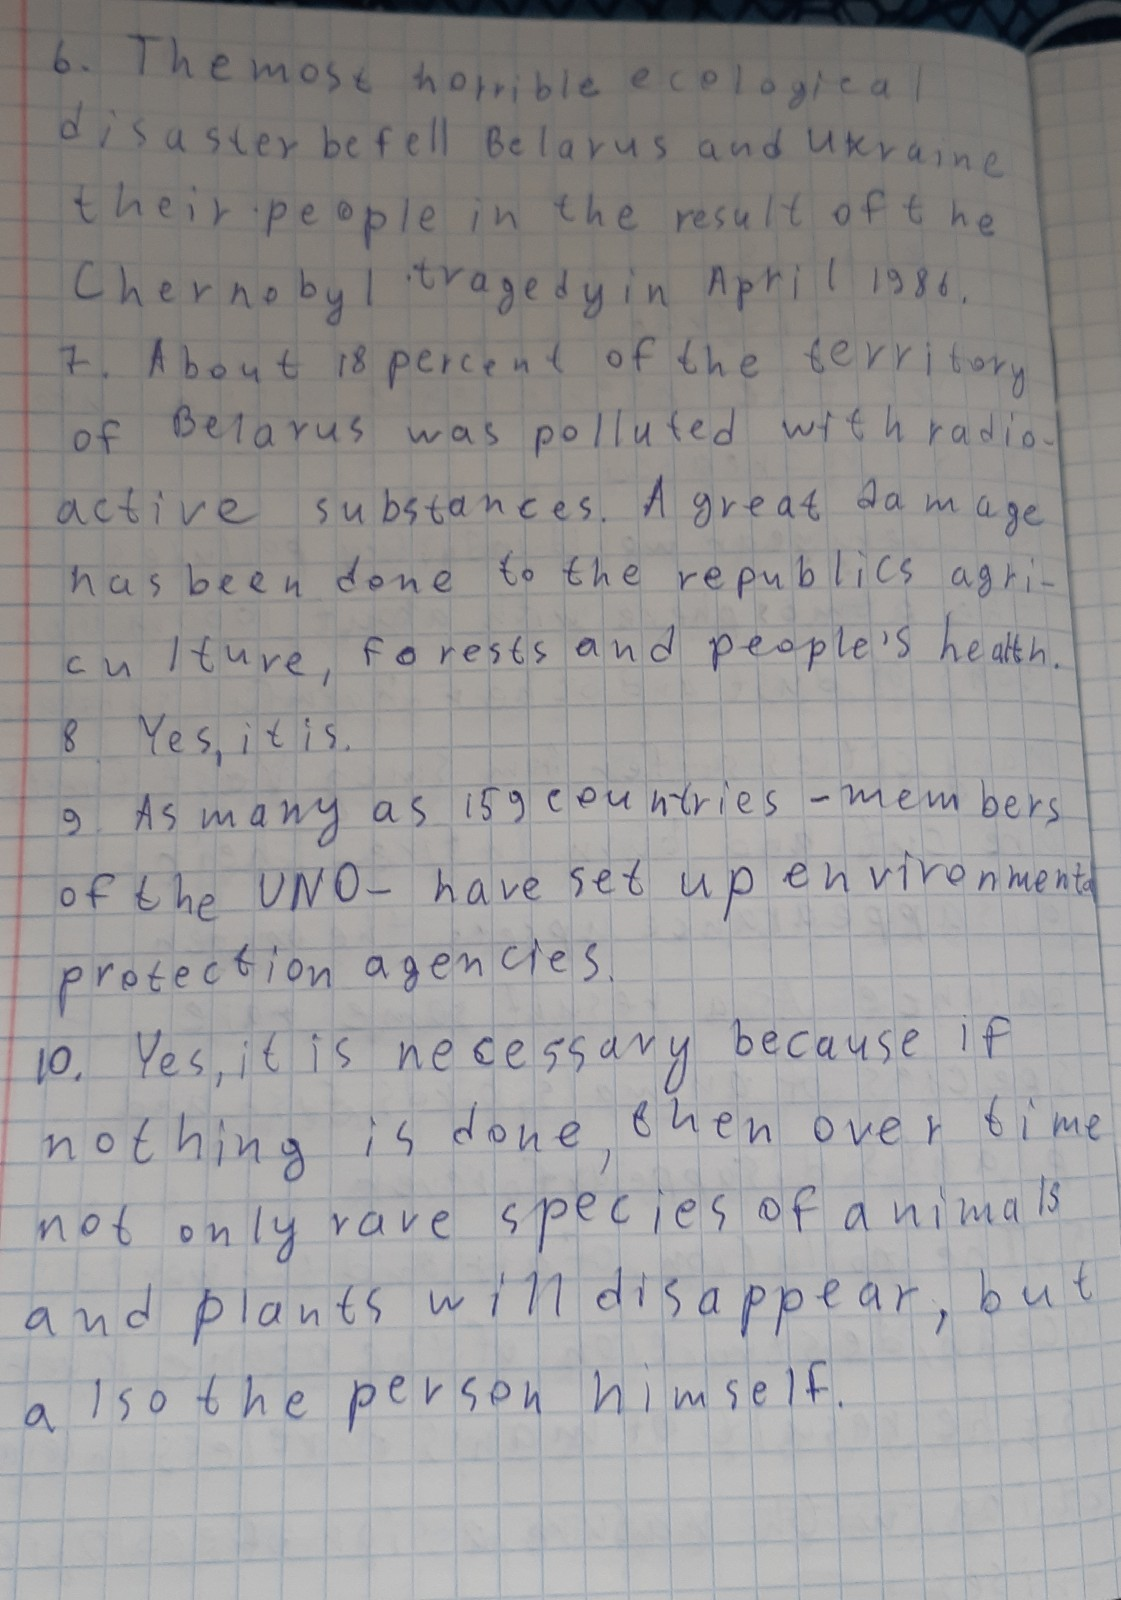 6. The most horrible ecological
disaster befell Belarus and Ukraine
their people in the result of the
Chernobyl tragedy in April 1986.
7. About 18 percent of the territory
of Belarus was polluted with radio-
active substances. A great damage
has been done to the republics agri-
culture, forests and people's health.
8 Yes, it is.
9 As many as 159 countries - members
of the UNO - have set up environmental
protection agencies.
10. Yes, it is necessary because if
nothing is done, then over time
not only rare species of animals
and plants will disappear, but
also the person himself.